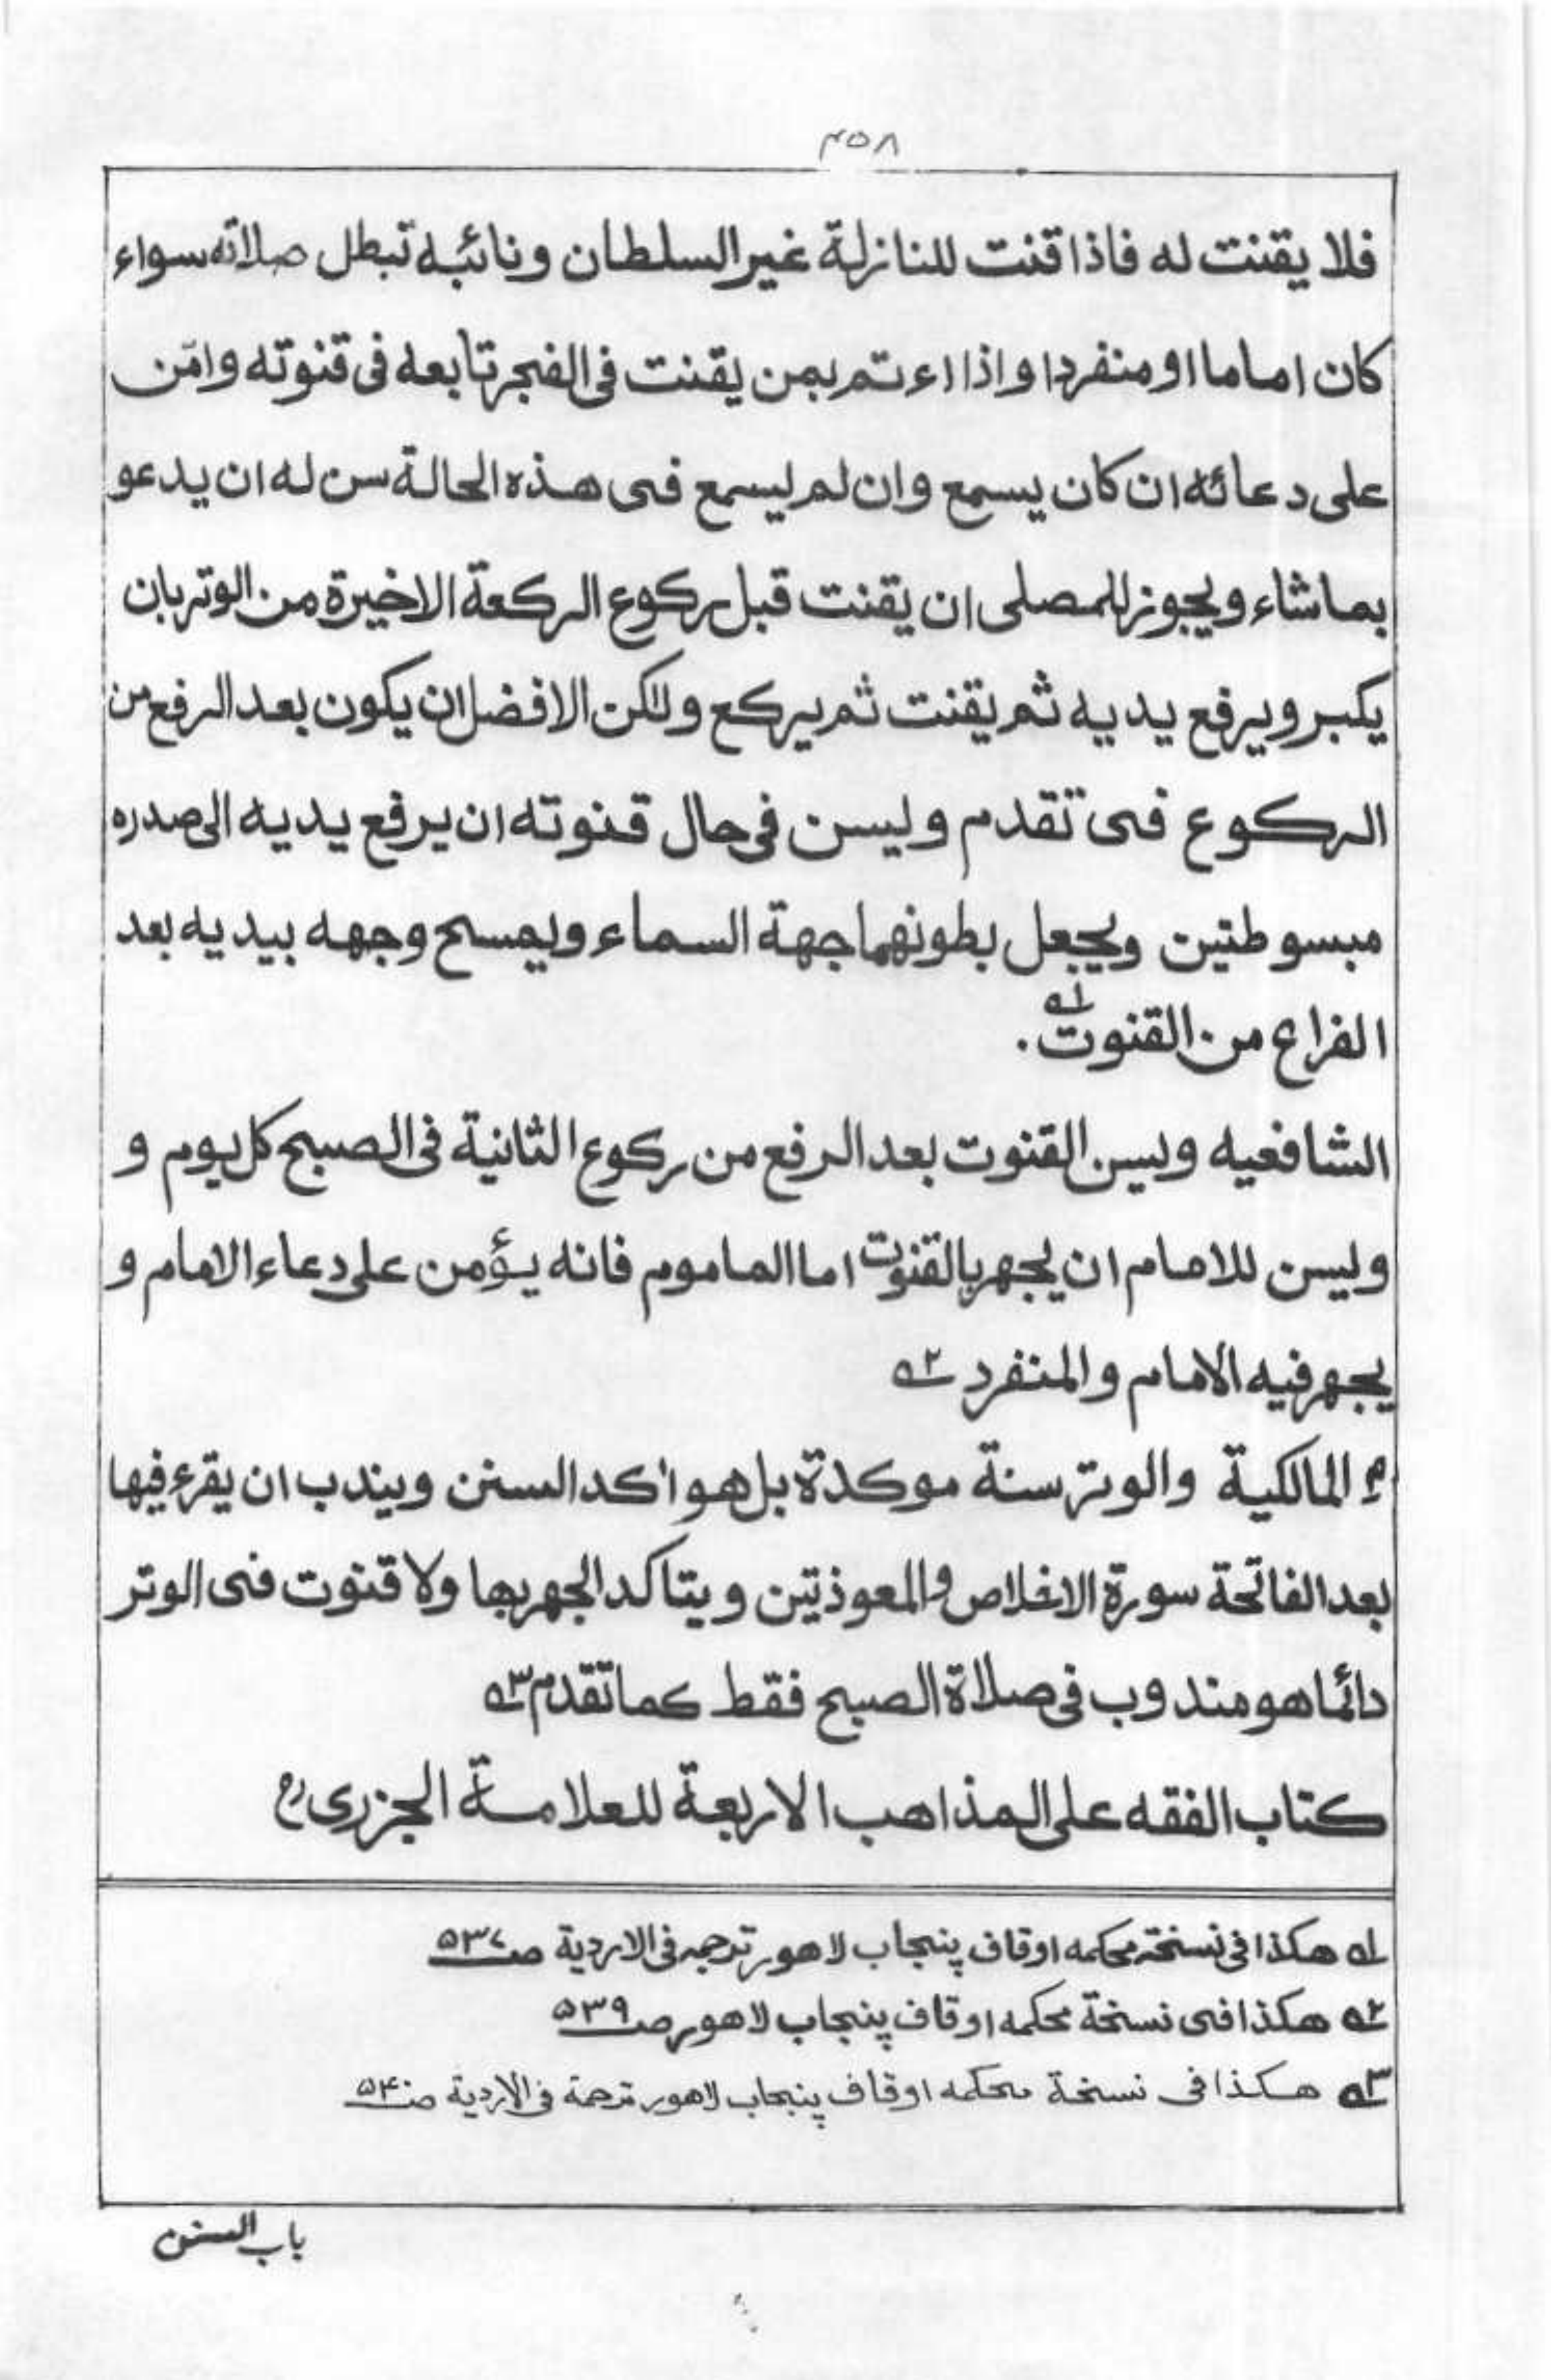 ۴۵۸
فلا يقنت له فاذا قنت للنازلة غير السلطان ونائبه تبطل صلاته سواء
كان اماما او منفردا و اذا اءتم بمن يقنت فى الفجر تابعه فى قنوته وامّن
على دعائه ان كان يسمع وان لم يسمع فى هذه الحالة سن له ان يدعو
بما شاء ويجوز للمصلى ان يقنت قبل ركوع الركعة الاخيرة من الوتر بان
يكبر ويرفع يديه ثم يقنت ثم يركع ولكن الافضل ان يكون بعد الرفع من
الركوع فى تقدم وليسن فى حال قنوته ان يرفع يديه الى صدره
مبسوطتين ويجعل بطونهما جهة السماء ويمسح وجهه بيديه بعد
الفراغ من القنوت ۱ه .
الشافعيه ويسن القنوت بعد الرفع من ركوع الثانية فى الصبح كل يوم و
وليسن للامام ان يجهر بالقنوت اما الماموم فانه يؤمن على دعاء الامام و
يجهر فيه الامام والمنفرد ۲ه
م المالكية والوتر سنة موكدة بل هو اكد السنن ويندب ان يقرء فيها
بعد الفاتحة سورة الاخلاص والمعوذتين ويتاكد الجهر بها ولا قنوت فى الوتر
دائما هو مندوب فى صلاة الصبح فقط كما تقدم ۳ه
كتاب الفقه على المذاهب الاربعة للعلامة الجزرى رح
۱ه هكذا فى نسخة محكمه اوقاف پنجاب لاهور ترجمه فى الاردية ص۵۳۷
۲ه هكذا فى نسخة محكمه اوقاف پنجاب لاهور ص۵۳۹
۳ه هكذا فى نسخة محكمه اوقاف پنجاب لاهور ترجمة فى الاردية ص۵۴۰
باب السنن